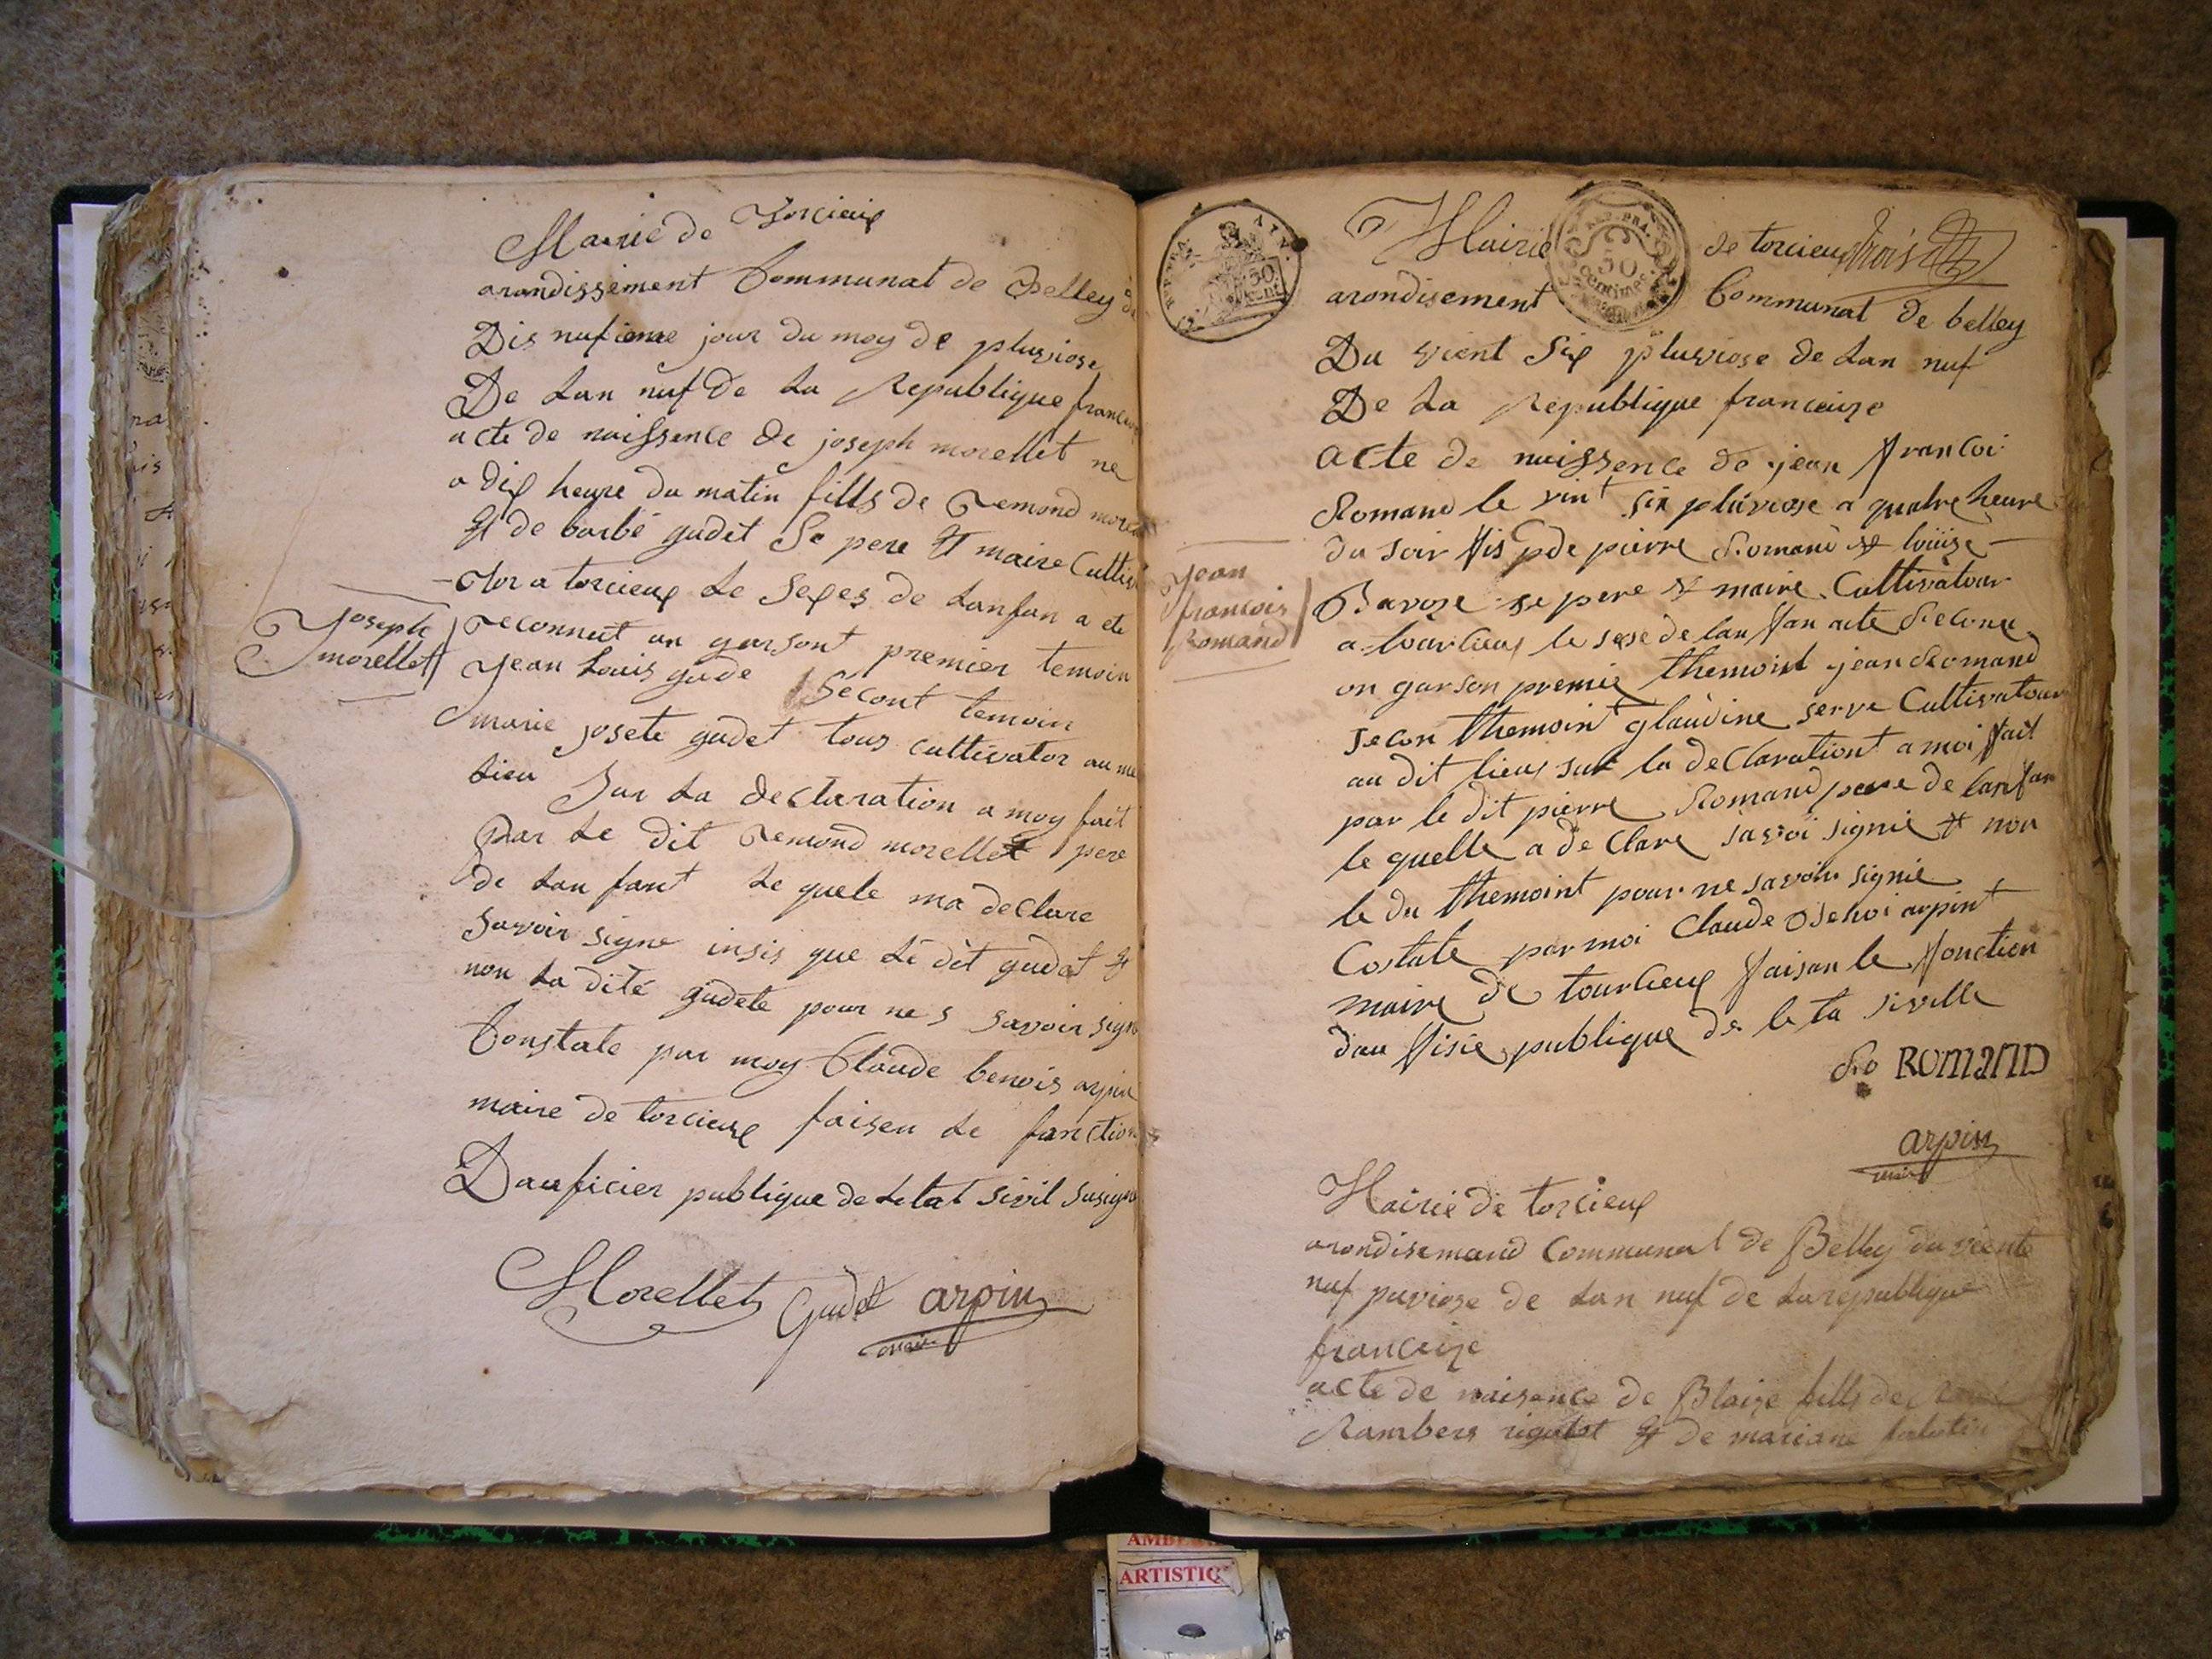 Mairie de Torcieux
arondissement Communal de Belley
Dis nufieme jour du moy de pluviose
De Lan nuf De La Republique
acte de naissence de joseph morellet ne
a dix heure du matin fills de Remond
Et de barbé gudet Se pere Et maire
a torcieux Le Sexes de Lanfan a ete
Joseph
morellet
reconnut un garsont premier temoin
Jean Louis gude Sécont temoin
marie josete gudet tous cultivator au
Lieu Sur La declaration a moy fait
Par Le Dit Remond morellet pere
de Lan fant Le quele ma declare
Savoir signe insis que Lé dit gudet Et
non La dité gudete pour ne s savoir
Constate par moy Claude benois arpin
maire de torcieux faisen Le fonction
Dauficier publique de Letat sivil
Morellet Gudet arpin
maire
50
CENT
50
centimes
Mairie de torcieux trois
arondisement Communal de belley
Du vient Six pluviose de Lan nuf
De La Republique francaize
acte de naissence de jean francoi
Romand le vint six pluviose a quatre heure
du soir fis de pierre Romand et louise
Jean
francois
Romand
Bavoze se pere et maire Cultivatour
a tourcieux le sexe de lan fan ate Reconu
on garson premie themoint jean Romand
secon themoint glaudine serve Cultivatour
au dit lieux sur la declarationt a moi fait
par le dit pierre Romand pere de lanfan
le quelle a de Clare savoi signie et non
le du themoint pour ne savoir signie
Costate par moi Claude Benoi arpint
maire de tourcieux faisan le fonction
dau fisie publique de le ta siville
Ro ROMAND
arpin
maire
Mairie de torcieux
arondisemand Communal de Belley du viente
nuf puviose de Lan nuf de La republique
francaize
acte de naisance de Blaize fills de
Rambers rigutet Et de mariane
AMBE
ARTISTIQ